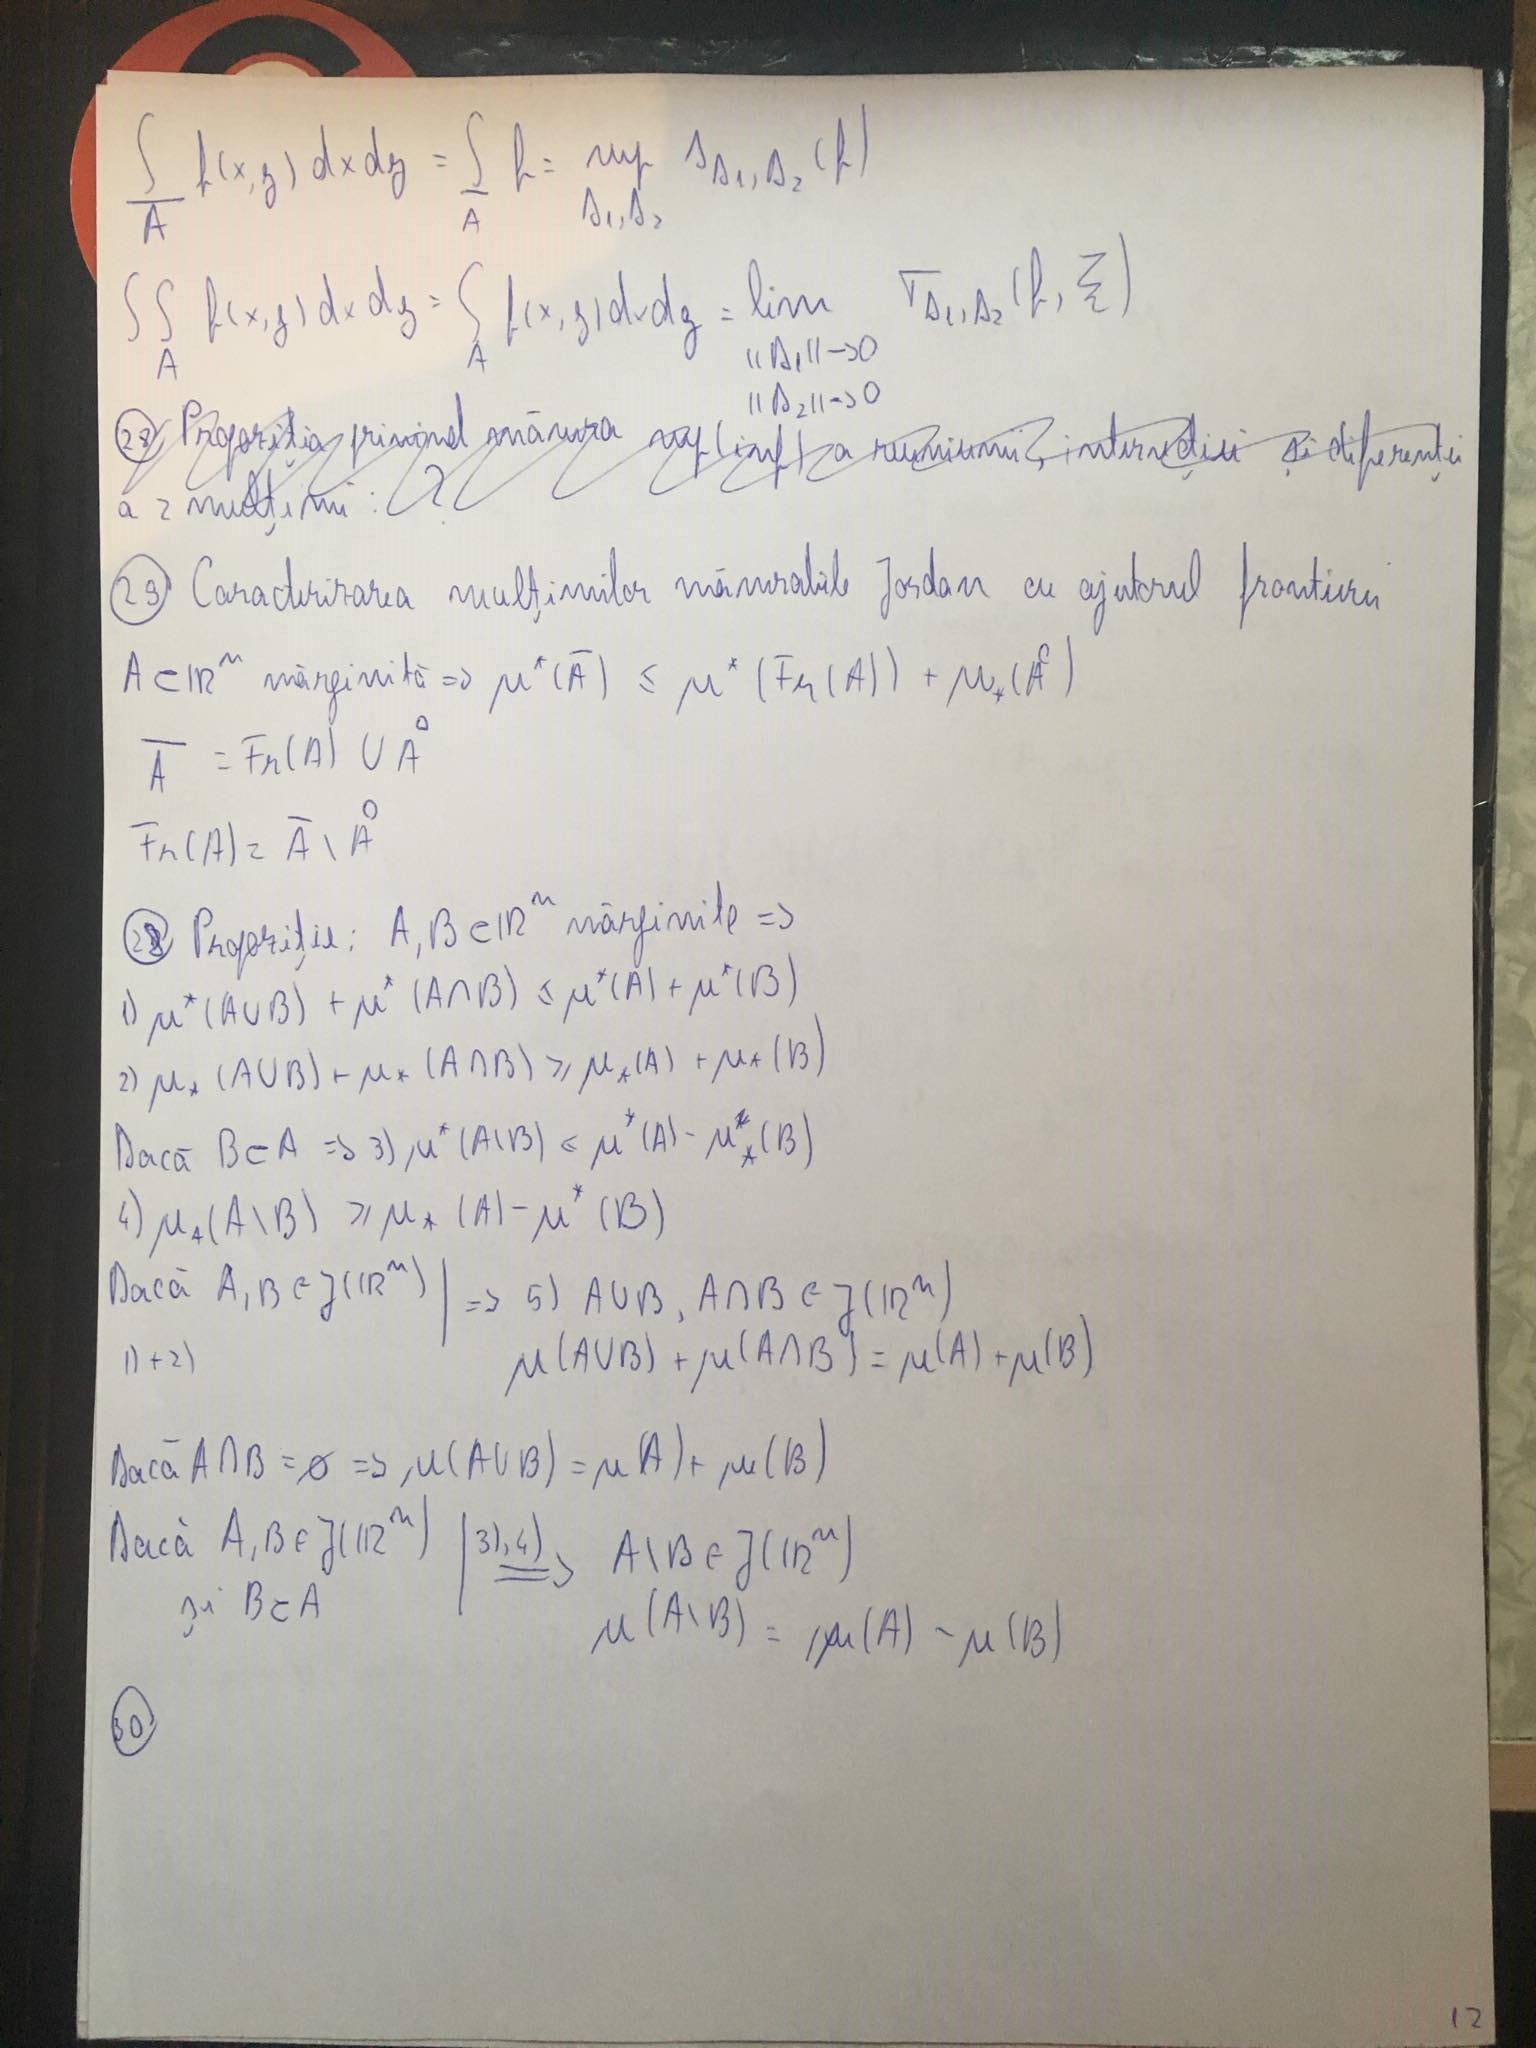 ∫_A f(x,y) dx dy = ∫_A f = sup_{Δ₁,Δ₂} s_{Δ₁,Δ₂}(f)
∫∫_A f(x,y) dx dy = ∫_A f(x,y) dx dy = lim_{||Δ₁||→0, ||Δ₂||→0} σ_{Δ₁,Δ₂}(f, ξ)
(28) Propoziția privind măsura sup(inf) a reuniunii, intersecției și diferenței
a 2 mulțimi : ?
(29) Caracterizarea mulțimilor măsurabile Jordan cu ajutorul frontierei
A ⊂ ℝⁿ mărginită => μ*(Ā) ≤ μ*(Fr(A)) + μ⁎(Å)
Ā = Fr(A) ∪ Å
Fr(A) = Ā \ Å
(28) Propoziție: A, B ⊂ ℝⁿ mărginite =>
1) μ*(A∪B) + μ*(A∩B) ≤ μ*(A) + μ*(B)
2) μ⁎(A∪B) + μ⁎(A∩B) ≥ μ⁎(A) + μ⁎(B)
Dacă B ⊂ A => 3) μ*(A\B) ≤ μ*(A) - μ⁎(B)
4) μ⁎(A\B) ≥ μ⁎(A) - μ*(B)
Dacă A, B ∈ J(ℝⁿ) | => 5) A∪B, A∩B ∈ J(ℝⁿ)
1) + 2) μ(A∪B) + μ(A∩B) = μ(A) + μ(B)
Dacă A∩B = ∅ => μ(A∪B) = μ(A) + μ(B)
Dacă A, B ∈ J(ℝⁿ) | 3), 4) => A\B ∈ J(ℝⁿ)
și B ⊂ A μ(A\B) = μ(A) - μ(B)
(30)
12